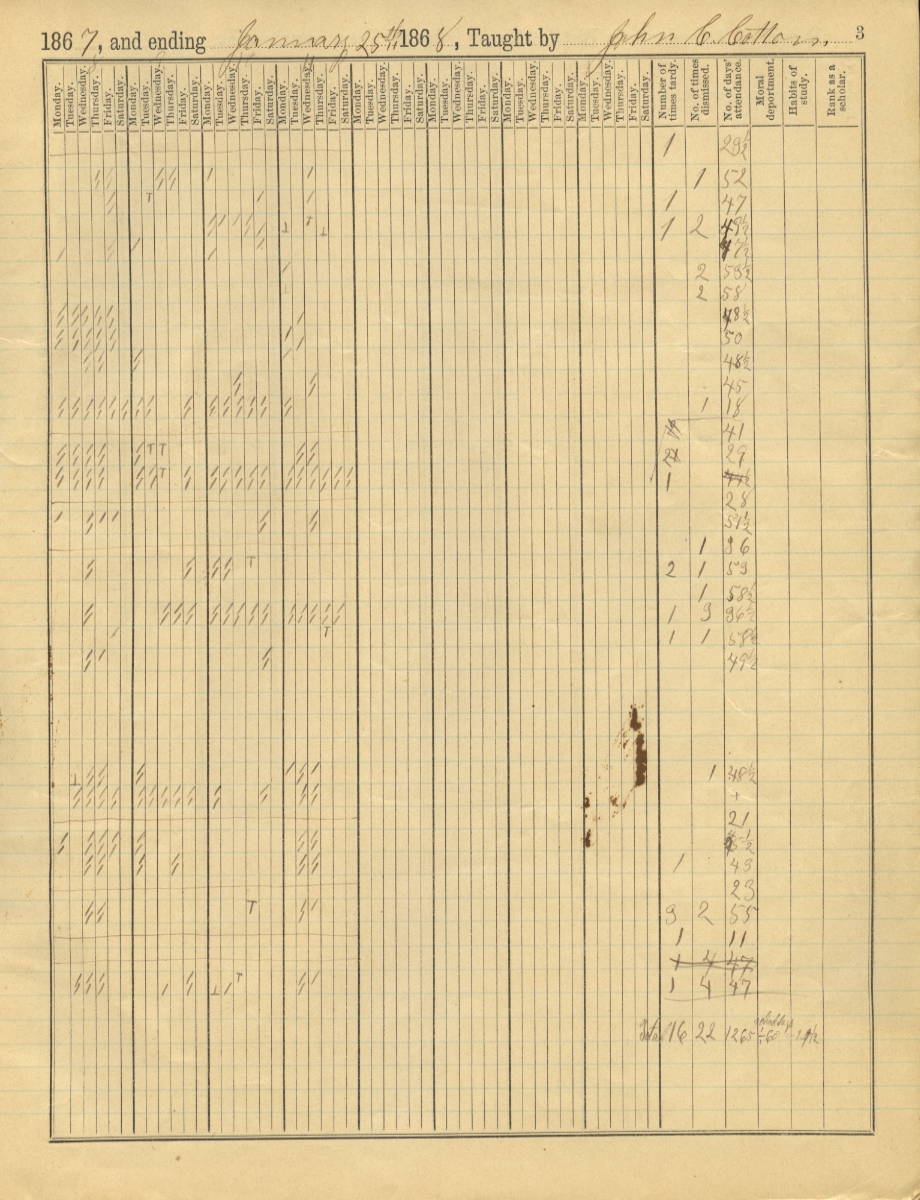 1867, and ending January 25th 1868, Taught by John C. Cotton. 3
Monday. Tuesday. Wednesday. Thursday. Friday. Saturday. Monday. Tuesday. Wednesday. Thursday. Friday. Saturday. Monday. Tuesday. Wednesday. Thursday. Friday. Saturday. Monday. Tuesday. Wednesday. Thursday. Friday. Saturday. Monday. Tuesday. Wednesday. Thursday. Friday. Saturday. Monday. Tuesday. Wednesday. Thursday. Friday. Saturday. Monday. Tuesday. Wednesday. Thursday. Friday. Saturday. Monday. Tuesday. Wednesday. Thursday. Friday. Saturday. Number of times tardy. No. of times dismissed. No. of days' attendance. Moral deportment. Habits of study. Rank as a scholar.
1 29½
1 52
T 1 47
T 1 2 49½
47½
2 59½
2 58
48½
50
48½
45
1 18
41
T T 29
T 1
28
51½
1 36
T 2 1 59
1 58½
1 3 36½
T 1 1 58½
49½
1 38½
+
21
1 49
23
T 3 2 55
1 11
1 4 47
T 1 4 47
Total 16 22 1265